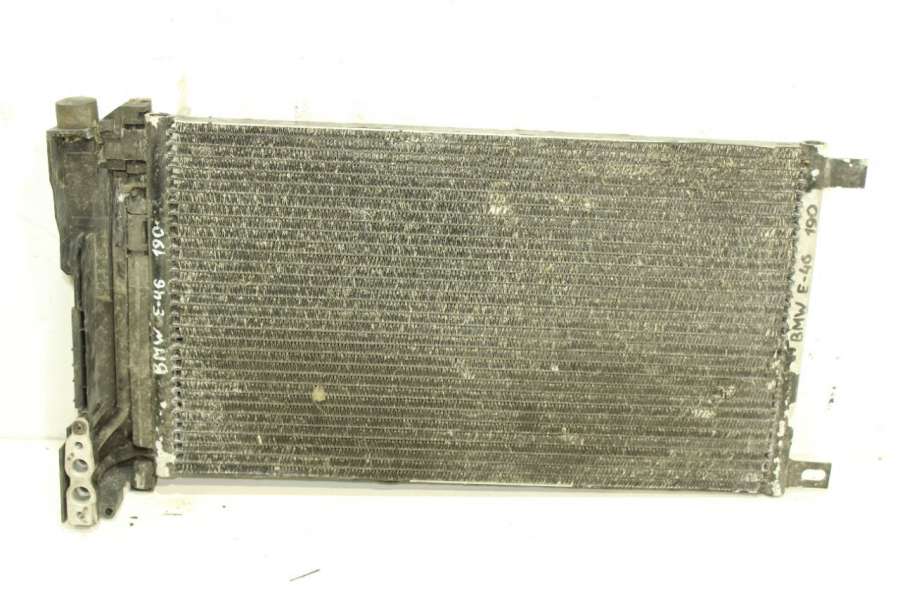 BMW E-46 190
BMW E-46 190